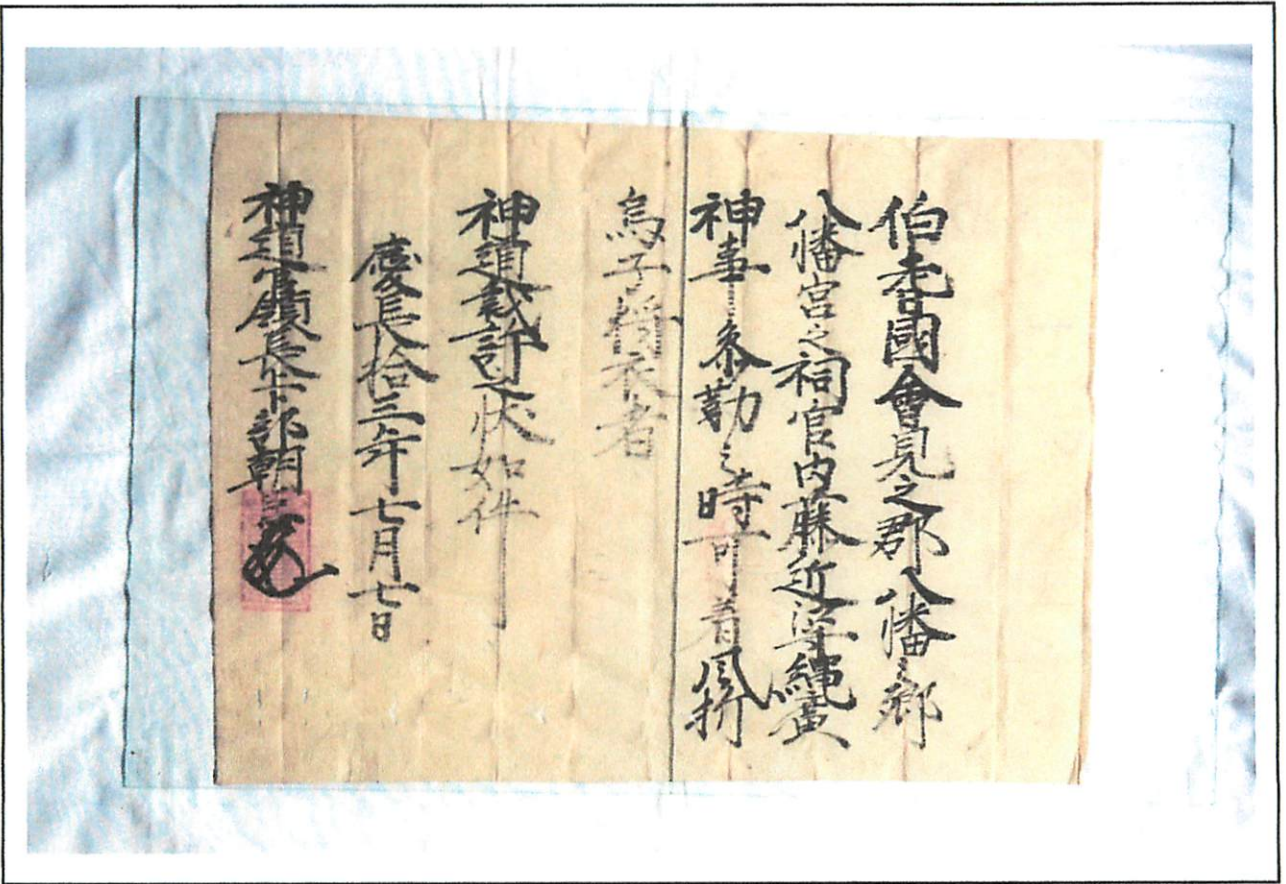 伯耆國會見之郡八幡之郷
八幡宮之祠官内藤近守縄廣
神事参勤之時可着風折
烏子狩衣者
神道裁許之状如件
慶長拾三年七月七日
神道管領長卜部朝臣